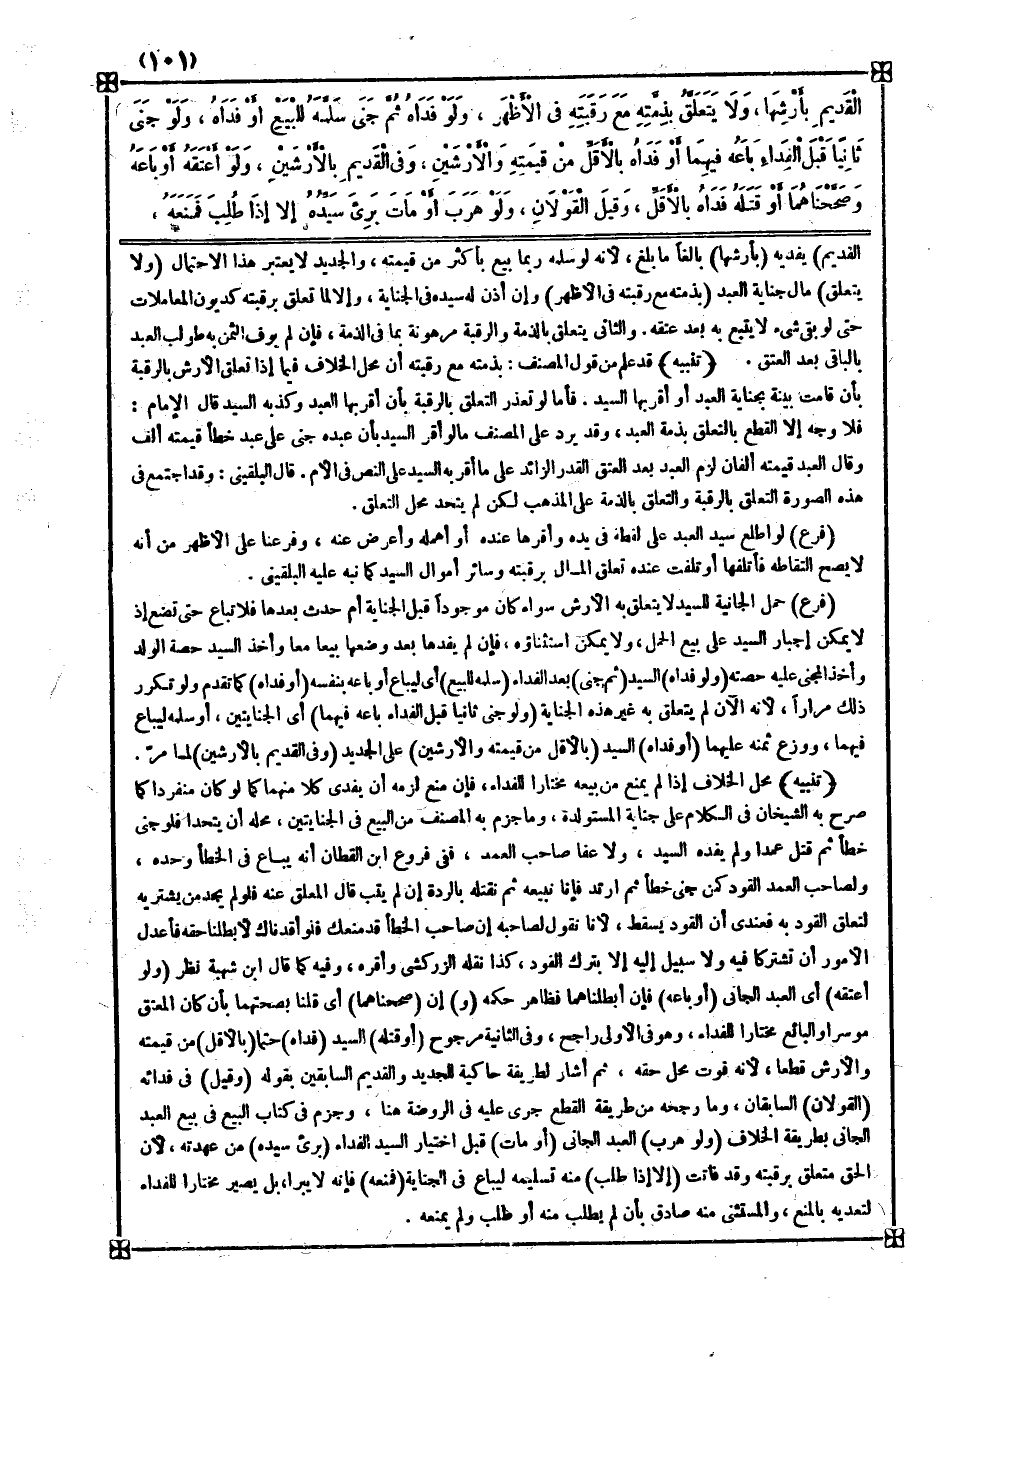 (١٠١)
الْقَدِيمِ بِأَرْشِهَا، وَلَا يَتَعَلَّقُ بِذِمَّتِهِ مَعَ رَقَبَتِهِ فِى الْأَظْهَرِ ، وَلَوْ فَدَاهُ ثُمَّ جَنَى سَلَّمَهُ لِلْبَيْعِ أَوْ فَدَاهُ ، وَلَوْ جَنَى
ثَانِيًا قَبْلَ الْفِدَاءِ بَاعَهُ فِيهِمَا أَوْ فَدَاهُ بِالْأَقَلِّ مِنْ قِيمَتِهِ وَالْأَرْشَيْنِ ، وَفِى الْقَدِيمِ بِالْأَرْشَيْنِ ، وَلَوْ أَعْتَقَهُ أَوْ بَاعَهُ
وَصَحَّحْنَاهُمَا أَوْ قَتَلَهُ فَدَاهُ بِالْأَقَلِّ ، وَقِيلَ الْقَوْلَانِ ، وَلَوْ هَرَبَ أَوْ مَاتَ بَرِئَ سَيِّدُهُ إِلَّا إِذَا طُلِبَ فَمَنَعَهُ ،
القديم) يفديه (بأرشها) بالغاً ما بلغ ، لأنه لو سلمه ربما بيع بأكثر من قيمته ، والجديد لا يعتبر هذا الاحتمال (ولا
يتعلق) مال جناية العبد (بذمته مع رقبته فى الأظهر) وإن أذن له سيده فى الجناية ، وإلا لما تعلق برقبته كديون المعاملات
حتى لو بقى شىء لا يتبع به بعد عتقه . والثانى يتعلق بالذمة والرقبة مرهونة بما فى الذمة ، فإن لم يوف الثمن به طولب العبد
بالباقى بعد العتق . (تنبيه) قد علم من قول المصنف : بذمته مع رقبته أن محل الخلاف فيما إذا تعلق الأرش بالرقبة
بأن قامت بينة بجناية العبد أو أقر بها السيد . فأما لو تعذر التعلق بالرقبة بأن أقر بها العبد وكذبه السيد قال الإمام :
فلا وجه إلا القطع بالتعلق بذمة العبد ، وقد يرد على المصنف ما لو أقر السيد بأن عبده جنى على عبد خطأ قيمته ألف
وقال العبد قيمته ألفان لزم العبد بعد العتق القدر الزائد على ما أقر به السيد على النص فى الأم . قال البلقينى : وقد اجتمع فى
هذه الصورة التعلق بالرقبة والتعلق بالذمة على المذهب لكن لم يتحد محل التعلق .
(فرع) لو اطلع سيد العبد على لقطة فى يده وأقرها عنده أو أهمله وأعرض عنه ، وفرعنا على الأظهر من أنه
لا يصح التقاطه فأتلفها أو تلفت عنده تعلق المال برقبته وسائر أموال السيد كما نبه عليه البلقينى .
(فرع) حمل الجانية للسيد لا يتعلق به الأرش سواء كان موجوداً قبل الجناية أم حدث بعدها فلا تباع حتى تضع إذ
لا يمكن إجبار السيد على بيع الحمل ، ولا يمكن استثناؤه ، فإن لم يفدها بعد وضعها بيعا معا وأخذ السيد حصة الولد
وأخذ المجنى عليه حصته (ولو فداه) السيد (ثم جنى) بعد الفداء (سلمه للبيع) أى ليباع أو باعه بنفسه (أو فداه) كما تقدم ولو تكرر
ذلك مراراً ، لأنه الآن لم يتعلق به غير هذه الجناية (ولو جنى ثانيا قبل الفداء باعه فيهما) أى الجنايتين ، أو سلمه ليباع
فيهما ، ووزع ثمنه عليهما (أو فداه) السيد (بالأقل من قيمته والأرشين) على الجديد (وفى القديم بالأرشين) لما مرّ .
(تنبيه) محل الخلاف إذا لم يمنع من بيعه مختارا للفداء ، فإن منع لزمه أن يفدى كلا منهما كما لو كان منفردا كما
صرح به الشيخان فى الكلام على جناية المستولدة ، وما جزم به المصنف من البيع فى الجنايتين ، محله أن يتحدا فلو جنى
خطأ ثم قتل عمدا ولم يفده السيد ، ولا عفا صاحب العمد ، ففى فروع ابن القطان أنه يباع فى الخطأ وحده ،
ولصاحب العمد القود كمن جنى خطأ ثم ارتد فإنا نبيعه ثم نقتله بالردة إن لم يتب قال المعلق عنه فلو لم يجد من يشتريه
لتعلق القود به فعندى أن القود يسقط ، لأنا نقول لصاحبه إن صاحب الخطأ قد منعك فلو أقدناك لأبطلنا حقه فأعدل
الأمور أن تشتركا فيه ولا سبيل إليه إلا بترك القود ، كذا نقله الزركشى وأقره ، وفيه كما قال ابن شهبة نظر (ولو
أعتقه) أى العبد الجانى (أو باعه) فإن أبطلناهما فظاهر حكمه (و) إن (صححناهما) أى قلنا بصحتهما بأن كان المعتق
موسرا والبائع مختارا للفداء ، وهو فى الأولى راجح ، وفى الثانية مرجوح (أو قتله) السيد (فداه) حتما (بالأقل) من قيمته
والأرش قطعا ، لأنه فوت محل حقه ، ثم أشار لطريقة حاكية للجديد والقديم السابقين بقوله (وقيل) فى فدائه
(القولان) السابقان ، وما رجحه من طريقة القطع جرى عليه فى الروضة هنا ، وجزم فى كتاب البيع فى بيع العبد
الجانى بطريقة الخلاف (ولو هرب) العبد الجانى (أو مات) قبل اختيار السيد الفداء (برئ سيده) من عهدته ، لأن
الحق متعلق برقبته وقد فاتت (إلا إذا طلب) منه تسليمه ليباع فى الجناية (فمنعه) فإنه لا يبرأ ، بل يصير مختارا للفداء
لتعديه بالمنع ، والمستثنى منه صادق بأن لم يطلب منه أو طلب ولم يمنعه .